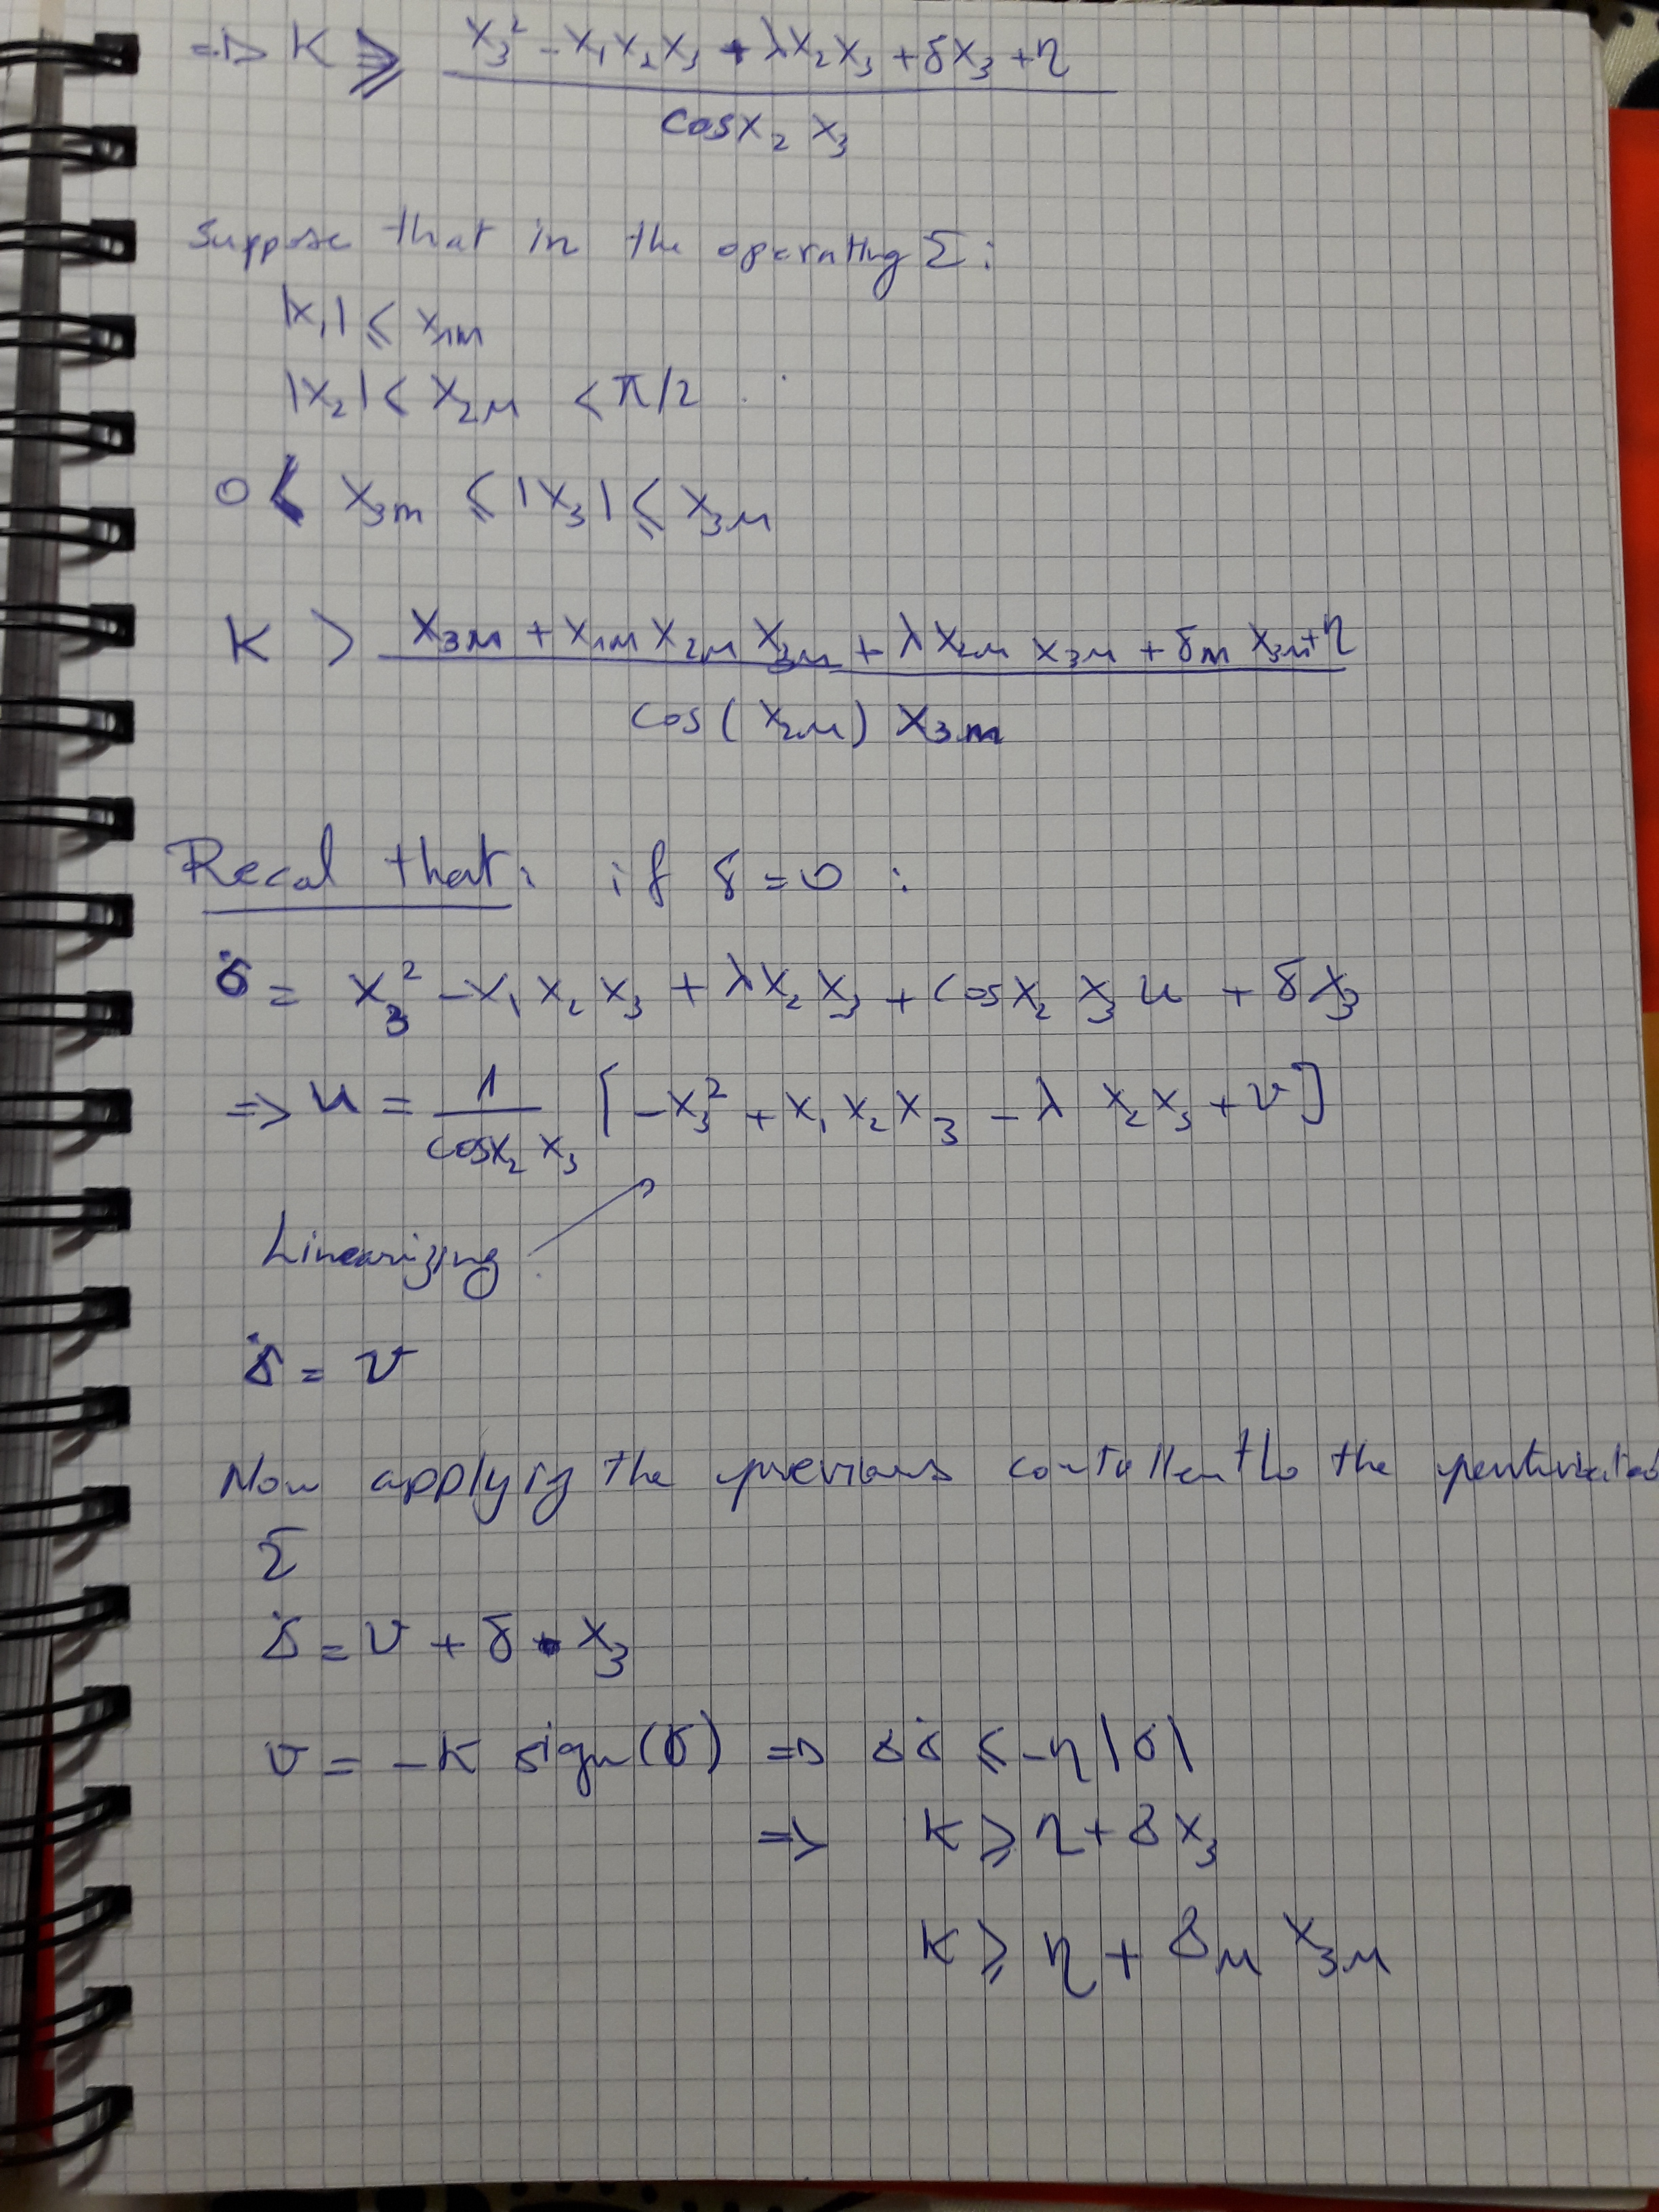 => K ⩾ (x₃² - x₁x₂x₃ + λx₂x₃ + δx₃ + η) / (cosx₂ x₃)
Suppose that in the operating Σ:
|x₁| ⩽ x₁M
|x₂| < x₂M < π/2
0 < x₃m ⩽ |x₃| ⩽ x₃M
K > (x₃M + x₁M x₂M x₃M + λ x₂M x₃M + δM x₃M + η) / (cos(x₂M) x₃m)
Recal that: if δ = 0 :
σ̇ = x₃² - x₁ x₂ x₃ + λx₂ x₃ + cosx₂ x₃ u + δx₃
=> u = 1 / (cosx₂ x₃) [-x₃² + x₁ x₂ x₃ - λ x₂x₃ + v]
Linearizing
σ̇ = v
Now applyig the previous controller to the perturbated
Σ
σ̇ = v + δ x₃
v = -K sign(σ) => σσ̇ ⩽ -η|σ|
=> K ⩾ η + δx₃
K ⩾ η + δM x₃M